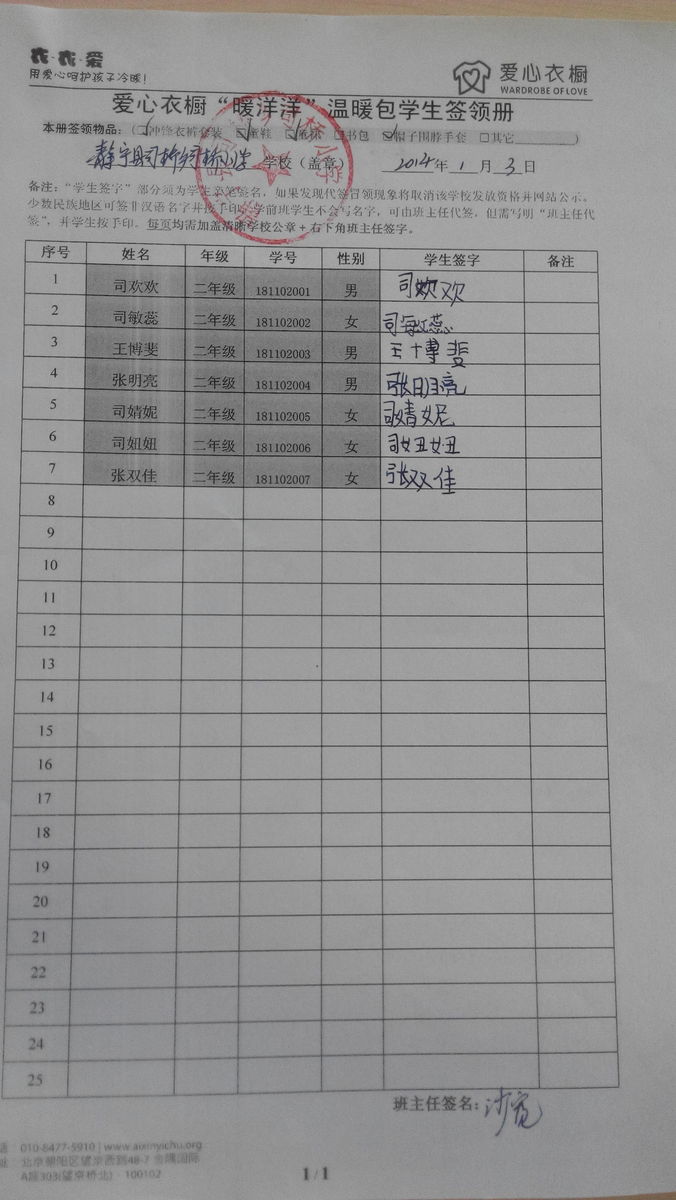 衣·衣·爱
用爱心呵护孩子冷暖!
爱心衣橱
WARDROBE OF LOVE
爱心衣橱“暖洋洋”温暖包学生签领册
本册签领物品:(☑冲锋衣裤套装 ☑童鞋 ☑童袜 □书包 ☑帽子围脖手套 □其它
静宁县司桥 学校(盖章) 2014年1月3日
备注:“学生签字”部分须为学生亲笔签名,如果发现代签冒领现象将取消该学校发放资格并网站公示。
少数民族地区可签非汉语名字并按手印。学前班学生不会写名字,可由班主任代签,但需写明“班主任代
签”,并学生按手印。每页均需加盖清晰学校公章+右下角班主任签字。
序号 姓名 年级 学号 性别 学生签字 备注
1 司欢欢 二年级 181102001 男 司欢欢
2 司敏蕊 二年级 181102002 女 司敏蕊
3 王博斐 二年级 181102003 男 王博斐
4 张明亮 二年级 181102004 男 张明亮
5 司婧妮 二年级 181102005 女 司婧妮
6 司妞妞 二年级 181102006 女 司妞妞
7 张双佳 二年级 181102007 女 张双佳
8
9
10
11
12
13
14
15
16
17
18
19
20
21
22
23
24
25
班主任签名:
010-8477-5910 | www.aixinyichu.org
北京朝阳区望京西路48-7 金隅国际
A座303(望京桥北) · 100102
1 / 1